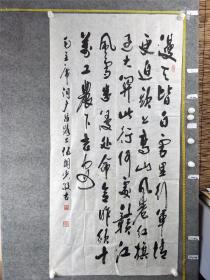 漫天皆白雪里行军情
更迫头上高山风卷红旗
过大关此行何去赣江
风雪迷漫处命令昨颁十
万工农下吉安
毛主席词广昌路上